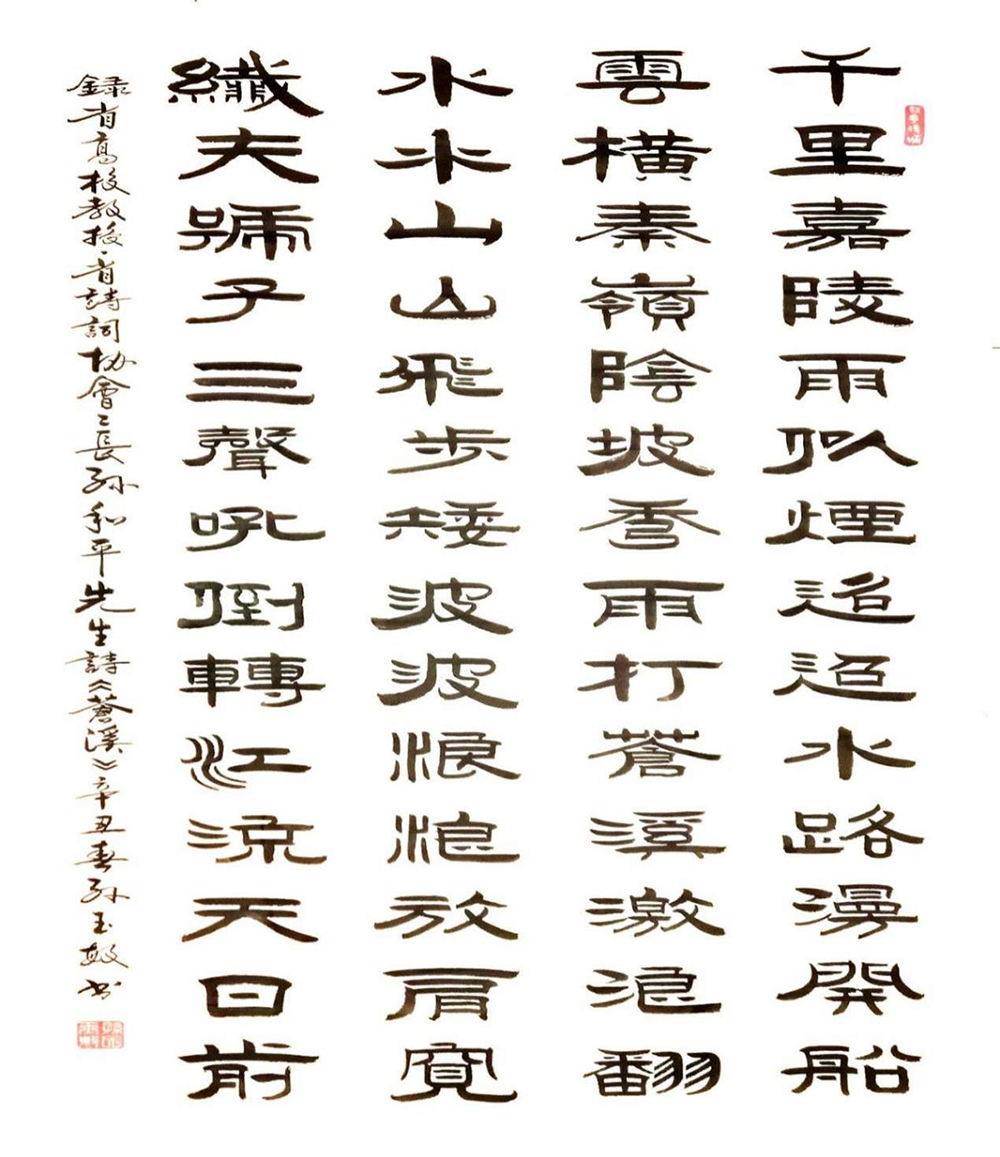 千里嘉陵雨似煙迢迢水路漫開船
雲橫秦嶺陰坡雪雨打蒼溪激浪翻
水水山山飛步矮波波浪浪放肩寬
纖夫號子三聲吼倒轉江流天日前
録省高校教授省詩詞协會會長孫和平先生詩《蒼溪》辛丑春孫玉敏书